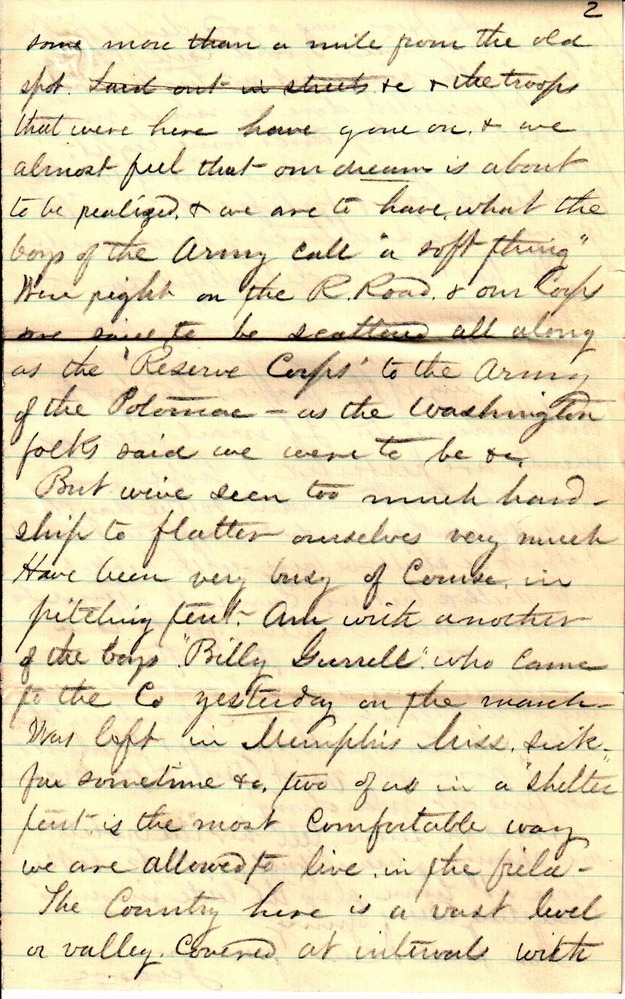 2
some more than a mile from the old
spot. Laid out in streets &c & the troops
that were here have gone on. & we
almost feel that our dream is about
to be realized, & we are to have, what the
boys of the Army call "a soft thing"
Were right on the R. Road. & our Corps
are said to be scattered all along
as the "Reserve Corps" to the Army
of the Potomac - as the Washington
folks said we were to be &c.
But we've seen too much hard-
ship to flatter ourselves very much
Have been very busy of Course, in
pitching tent. Am with another
of the boys "Billy Gurrell". who came
to the Co yesterday on the march-
Was left in Memphis Miss. sick-
for sometime &c, two of us in a "shelter"
tent. is the most comfortable way
we are allowed to live, in the field-
The Country here is a vast level
or valley. Covered at intervals with